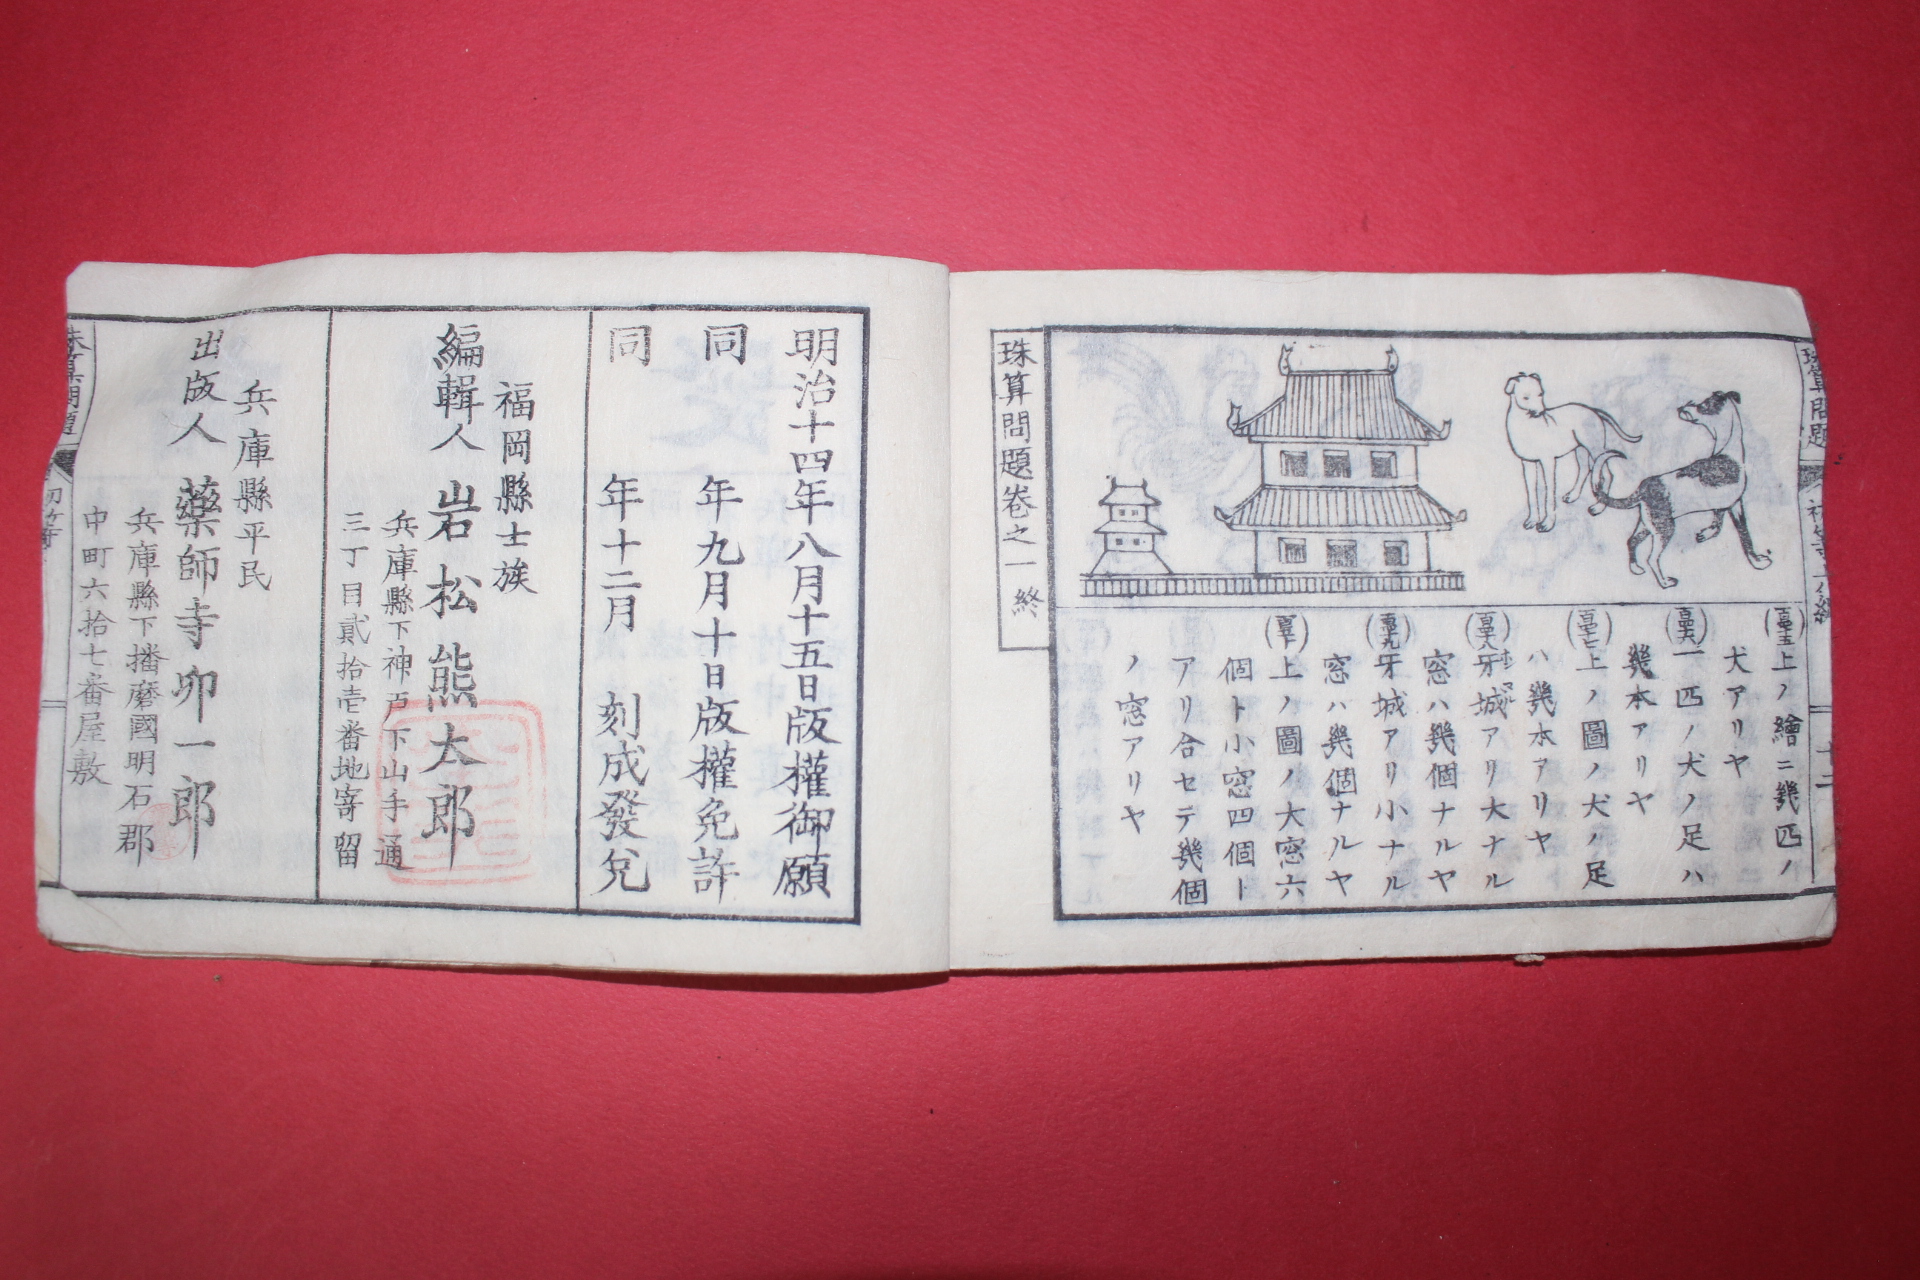 上ノ繪ニ幾匹ノ
犬アリヤ
一匹ノ犬ノ足ハ
幾本アリヤ
上ノ圖ノ犬ノ足
ハ幾本アリヤ
牙城アリ大ナル
窓ハ幾個ナルヤ
牙城アリ小ナル
窓ハ幾個ナルヤ
上ノ圖ノ大窓六
個ト小窓四個ト
アリ合セテ幾個
ノ窓アリヤ
珠算問題卷之一終
明治十四年八月十五日版權御願
同 年九月十日版權免許
同 年十二月 刻成發兌
福岡縣士族
編輯人 岩松熊太郎
兵庫縣下神戸下山手通
三丁目貳拾壱番地寄留
兵庫縣平民
出版人 藥師寺卯一郎
兵庫縣下播磨國明石郡
中町六拾七番屋敷
珠算問題